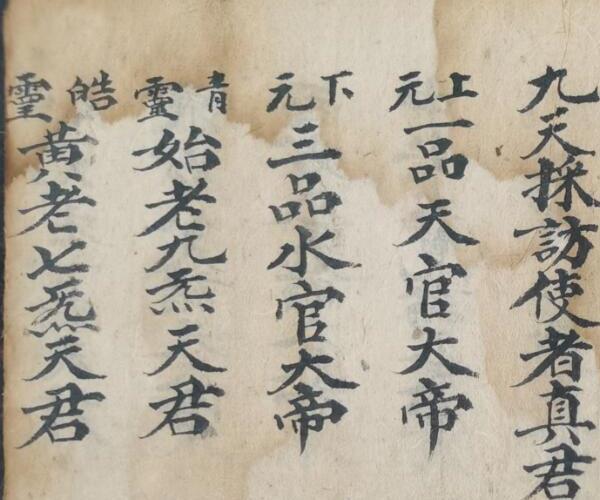 九天採訪使者真君
上元一品天官大帝
下元三品水官大帝
青靈始老九炁天君
皓靈黄老七炁天君